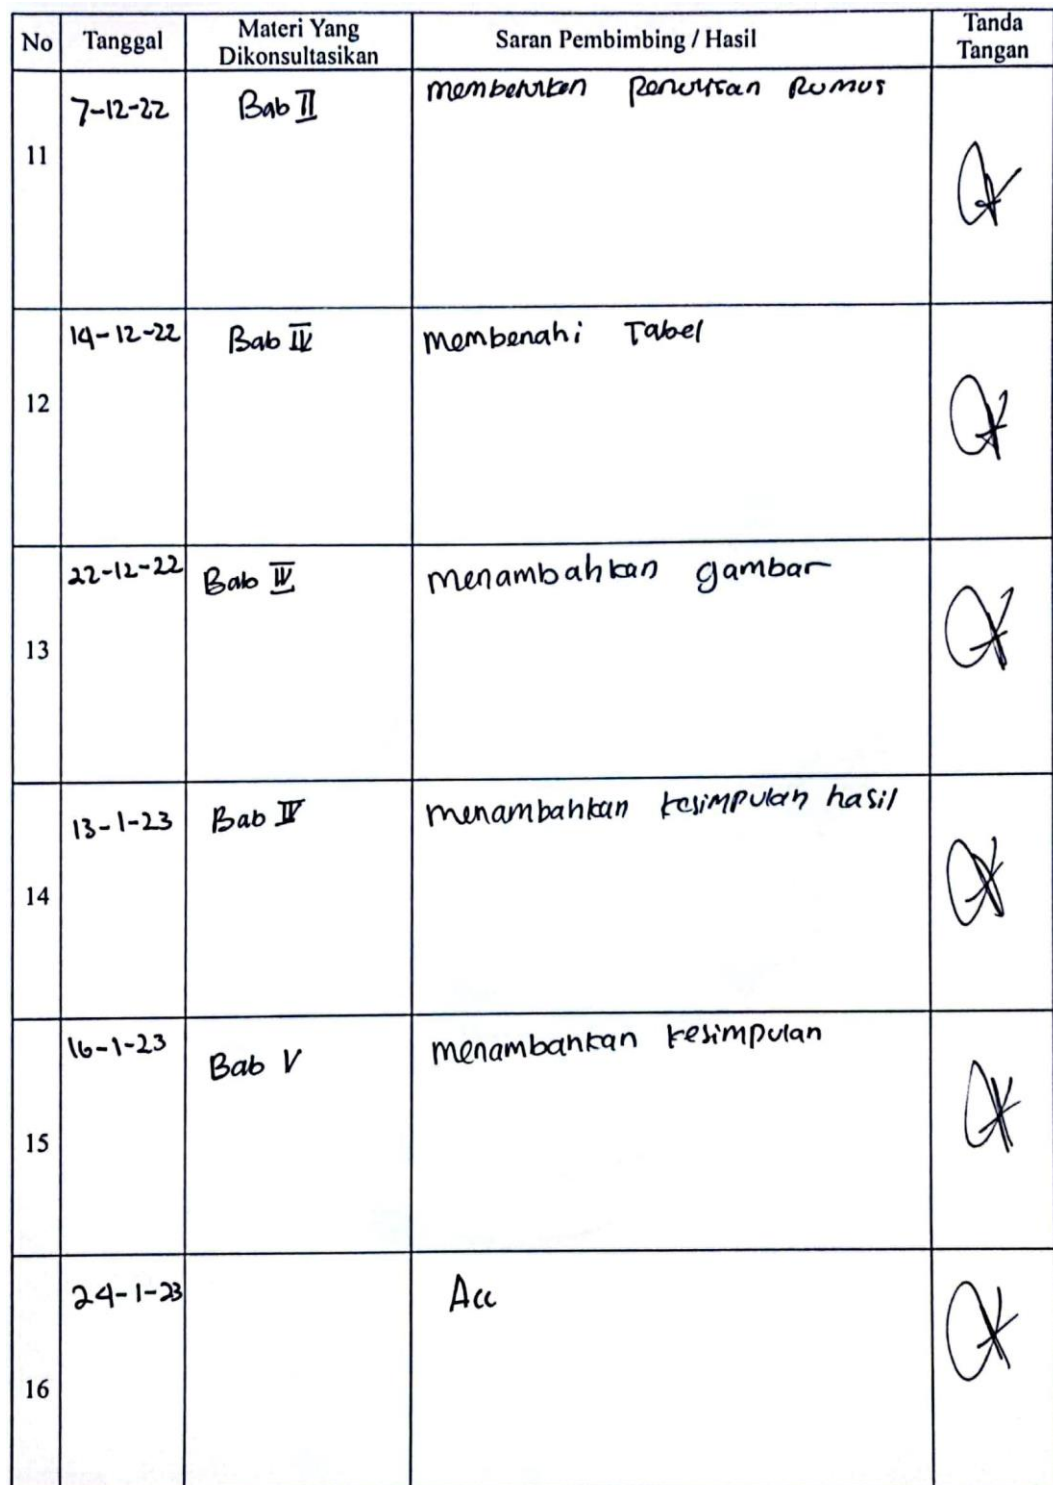 No Tanggal Materi Yang Dikonsultasikan Saran Pembimbing / Hasil Tanda Tangan
11 7-12-22 Bab II membetulkan Penulisan Rumus
12 14-12-22 Bab IV membenahi Tabel
13 22-12-22 Bab IV menambahkan gambar
14 13-1-23 Bab IV menambahkan kesimpulan hasil
15 16-1-23 Bab V menambahkan kesimpulan
16 24-1-23 Acc